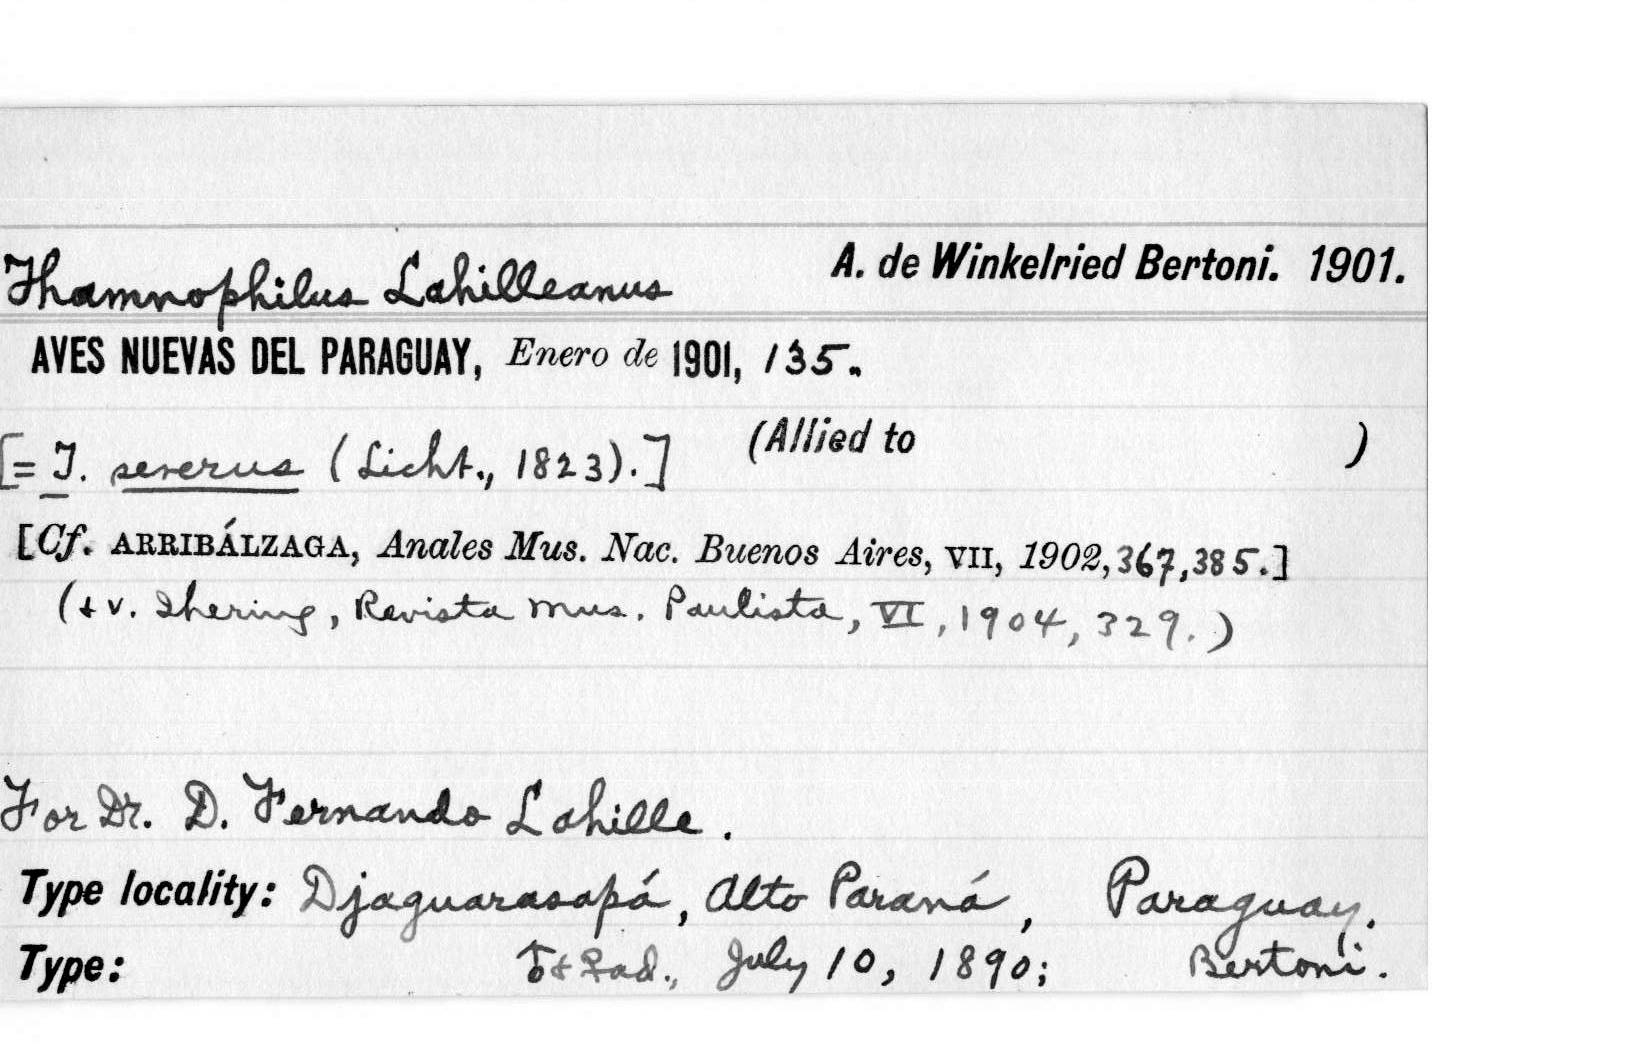 Thamnophilus Lahilleanus A. de Winkelried Bertoni. 1901.
AVES NUEVAS DEL PARAGUAY, Enero de 1901, 135.
[= T. severus (Licht., 1823).] (Allied to )
[Cf. ARRIBÁLZAGA, Anales Mus. Nac. Buenos Aires, VII, 1902, 367, 385.]
(& v. Ihering, Revista Mus. Paulista, VI, 1904, 329.)
For Dr. D. Fernando Lahille.
Type locality: Djaguarasapá, Alto Paraná, Paraguay.
Type: ♂ & ♀ ad., July 10, 1890; Bertoni.